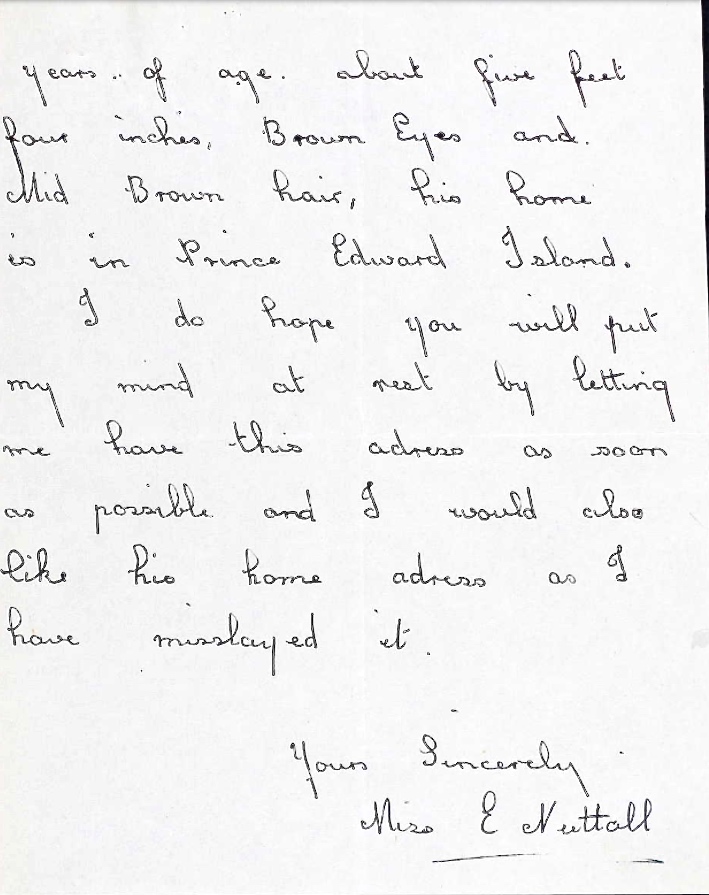 years.. of age. about five feet
four inches, Brown Eyes and.
Mid Brown hair, his home
is in Prince Edward Island.
I do hope you will put
my mind at rest by letting
me have this adress as soon
as possible and I would also
like his home adress as I
have misslayed it.
Yours Sincerely
Miss E Nuttall